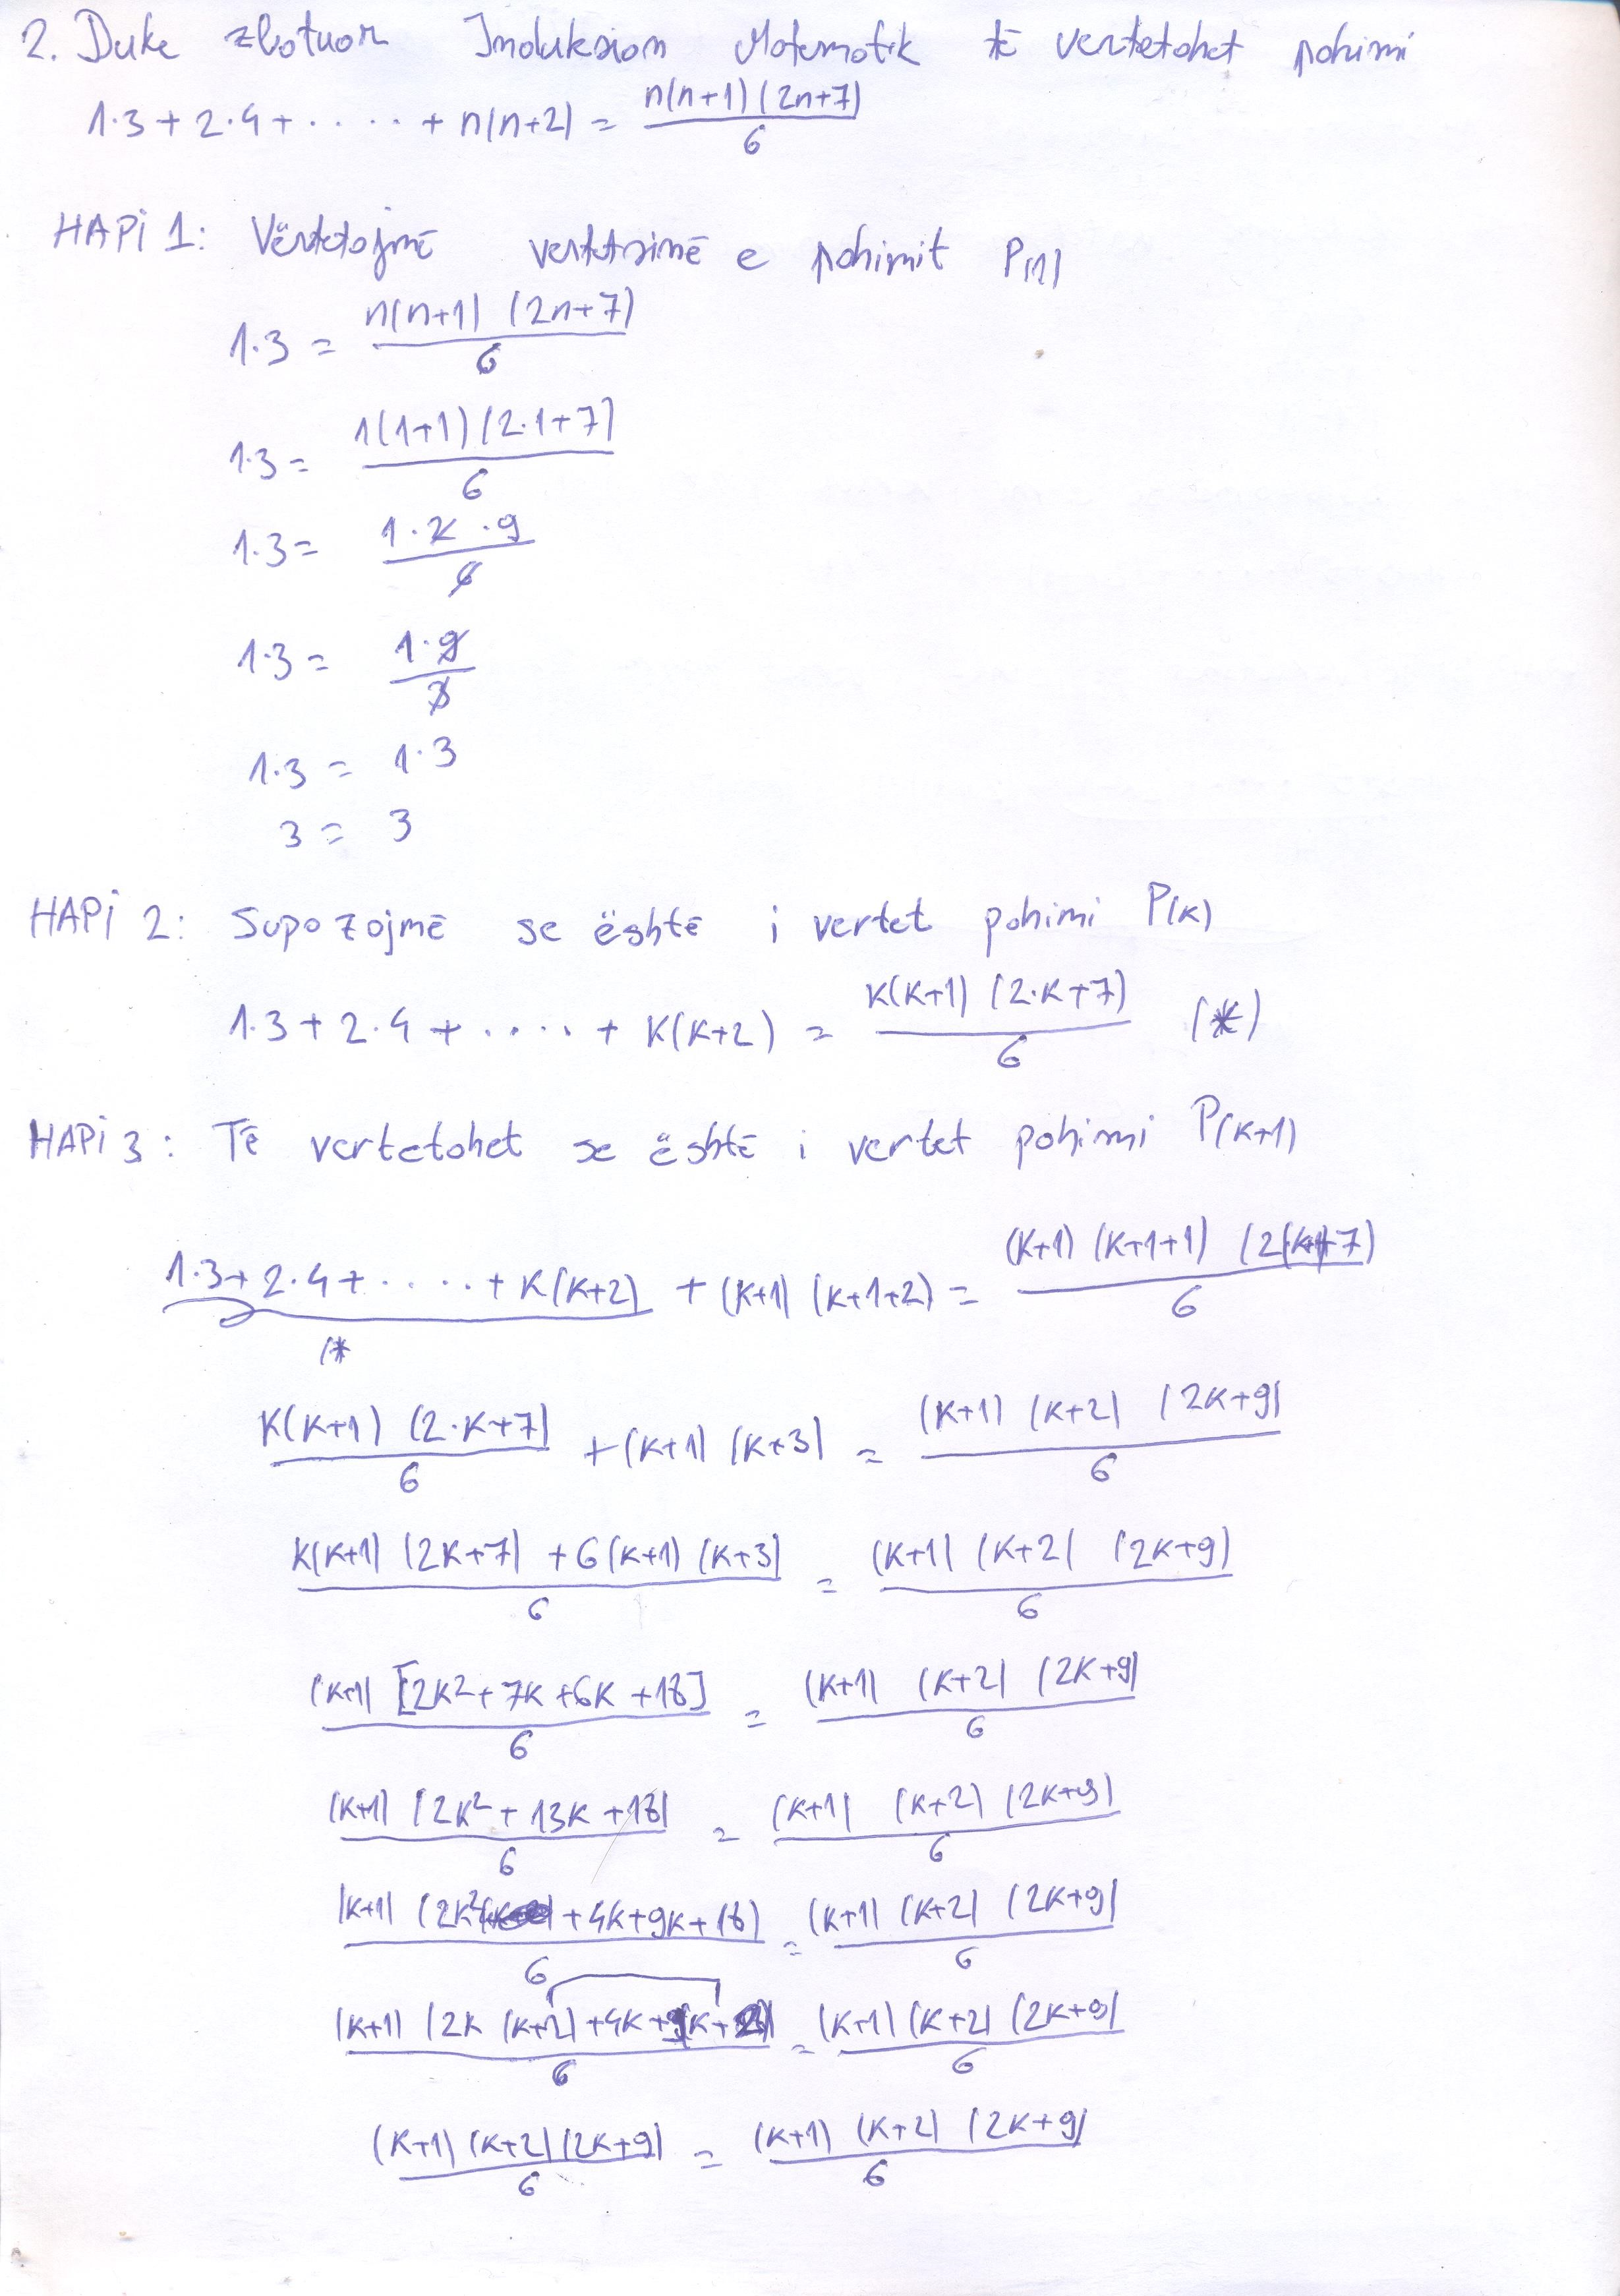 2. Duke zbatuar Induksion Matematik të vertetohet pohimi
1·3 + 2·4 + ····· + n(n+2) = n(n+1)(2n+7)/6
HAPi 1: Vërtetojmë vertetsinë e pohimit P(1)
1·3 = n(n+1)(2n+7)/6
1·3 = 1(1+1)(2·1+7)/6
1·3 = 1·2·9/6
1·3 = 1·9/3
1·3 = 1·3
3 = 3
HAPi 2: Supozojmë se është i vertet pohimi P(k)
1·3 + 2·4 + ····· + k(k+2) = k(k+1)(2·k+7)/6 (*)
HAPi 3: Të vertetohet se është i vertet pohimi P(k+1)
1·3 + 2·4 + ····· + k(k+2) + (k+1)(k+1+2) = (k+1)(k+1+1)(2(k+1)+7)/6
(*
k(k+1)(2·k+7)/6 + (k+1)(k+3) = (k+1)(k+2)(2k+9)/6
k(k+1)(2k+7) + 6(k+1)(k+3)/6 = (k+1)(k+2)(2k+9)/6
(k+1)[2k²+7k+6k+18]/6 = (k+1)(k+2)(2k+9)/6
(k+1)(2k²+13k+18)/6 = (k+1)(k+2)(2k+9)/6
(k+1)(2k²+4k+9k+18)/6 = (k+1)(k+2)(2k+9)/6
(k+1)(2k(k+2)+ (k+2)/6 = (k+1)(k+2)(2k+9)/6
(k+1)(k+2)(2k+9)/6 = (k+1)(k+2)(2k+9)/6